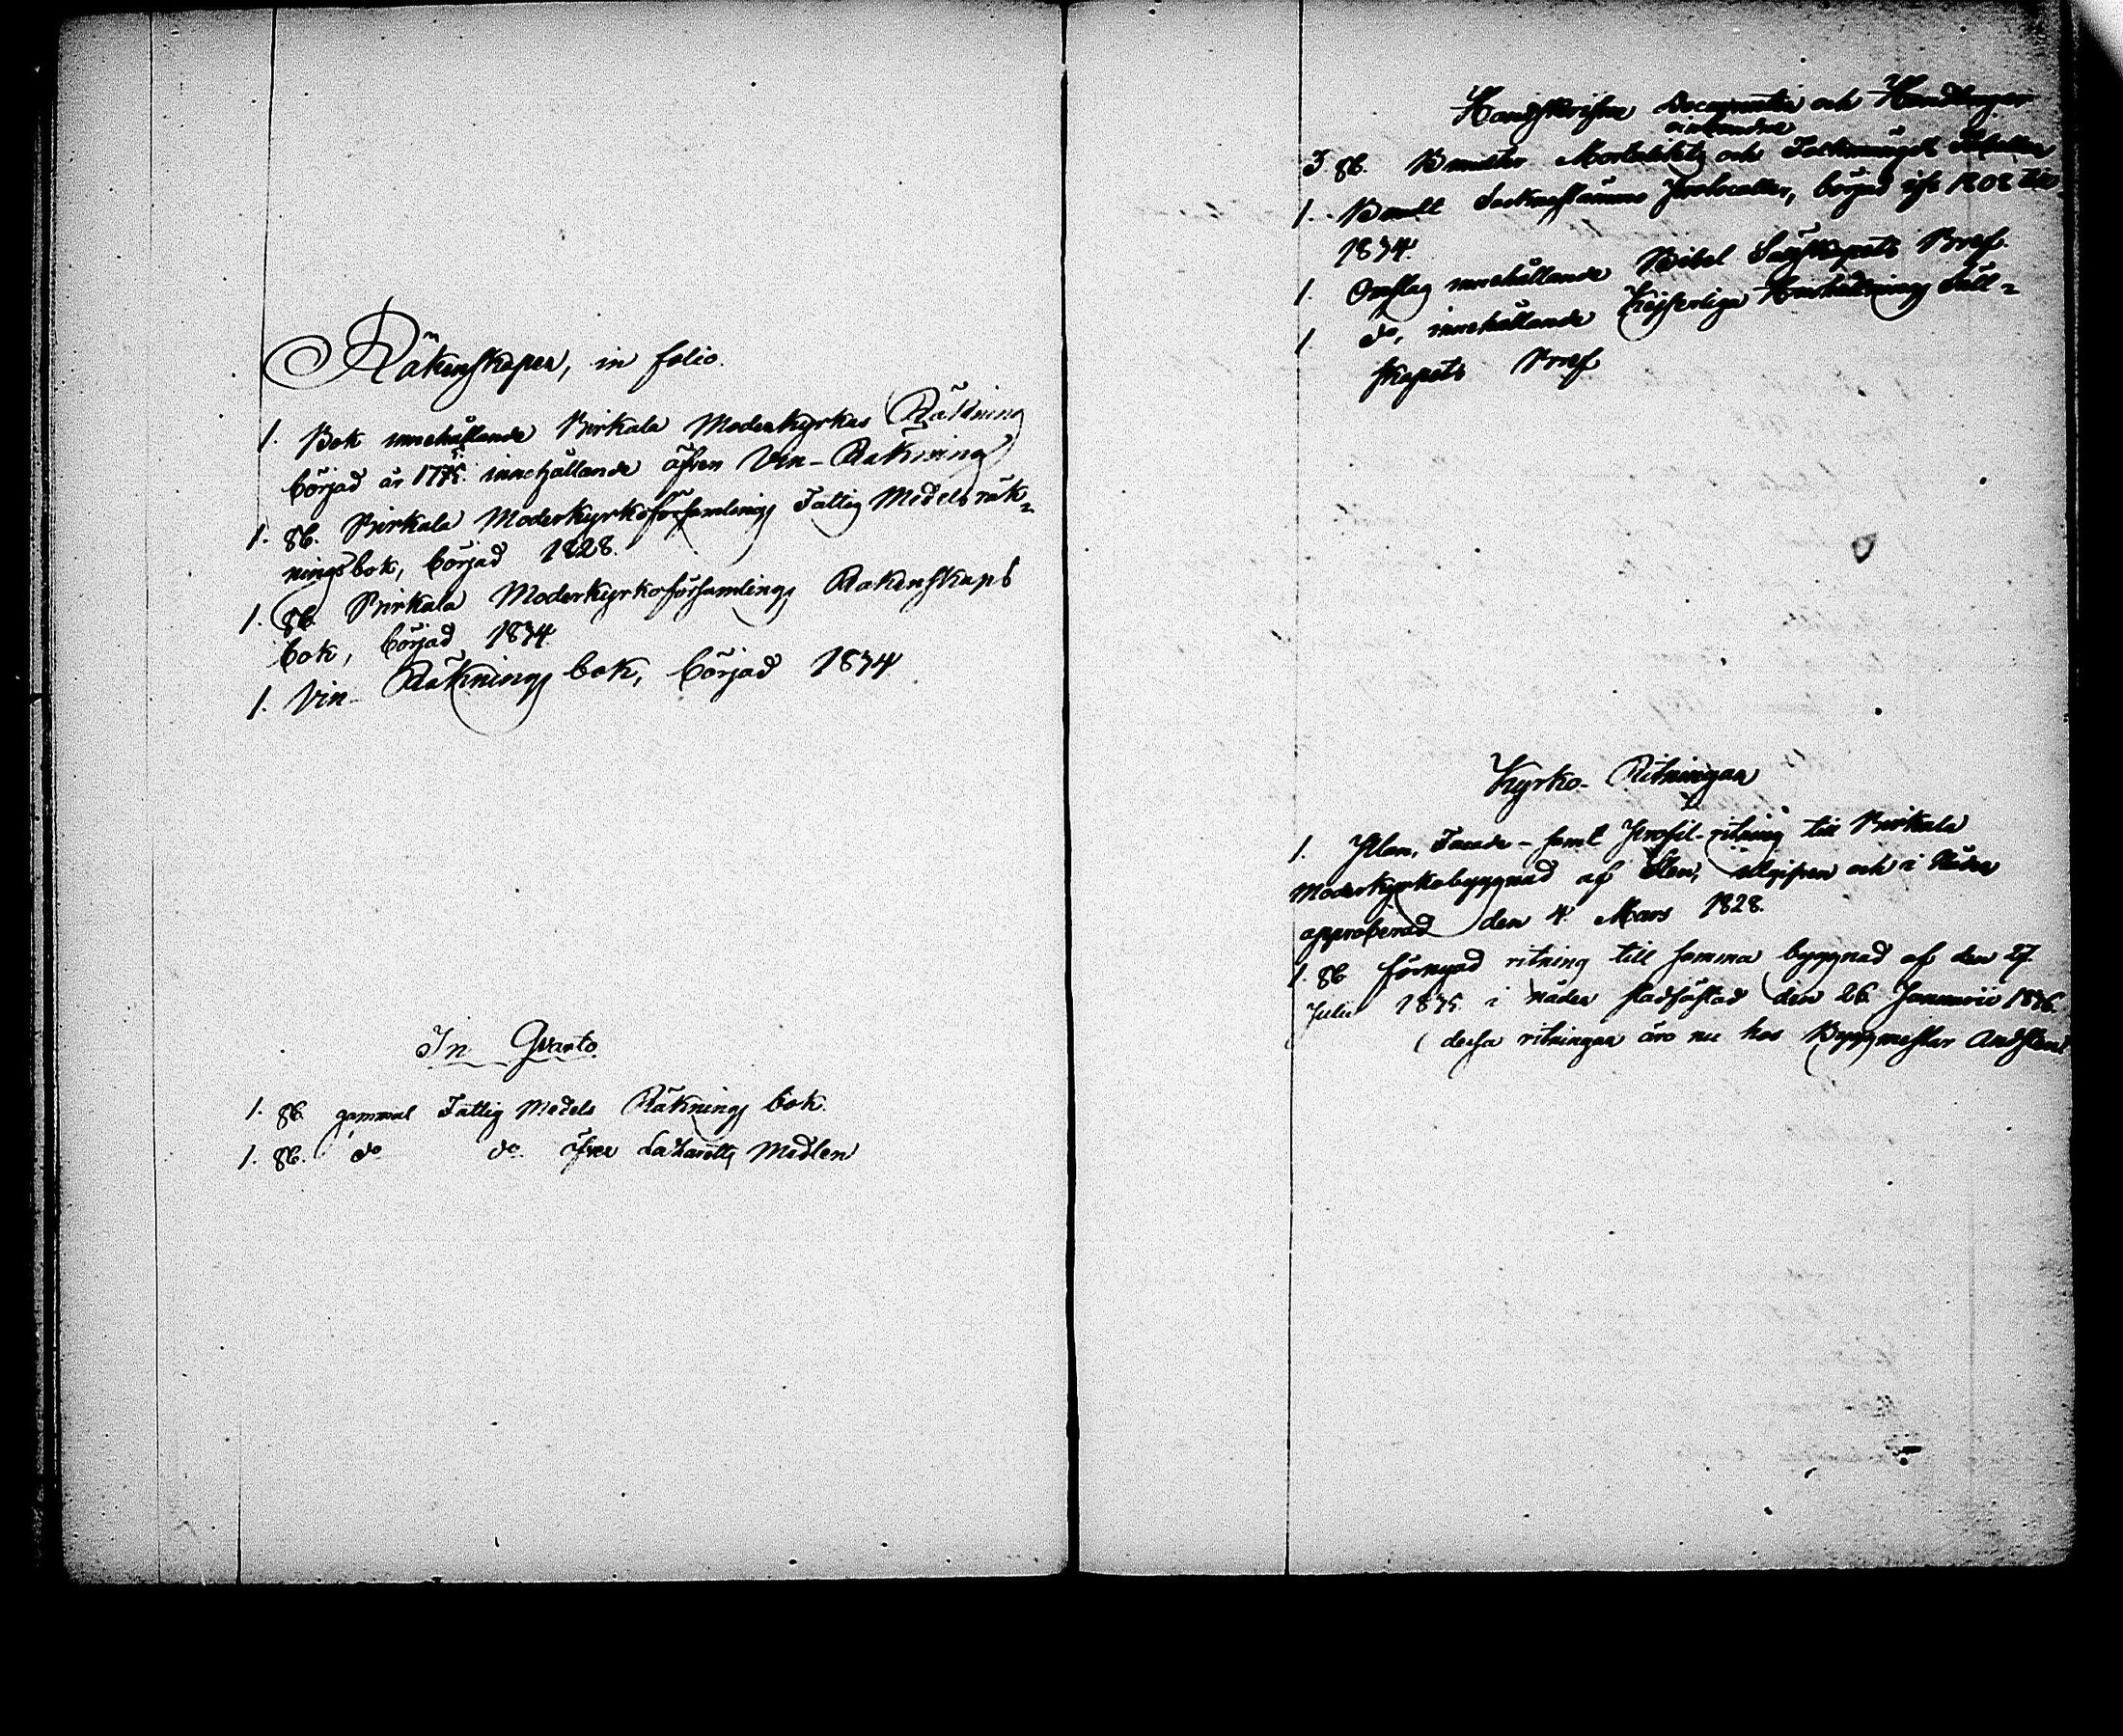 Räkenskaper, in folio.
1. Bok innehållande Birkala Moderkyrkas Räkning
börjad år 1775. innehållande äfven Vin-Räkning
1. st. Birkala Moderkyrkoförsamlings Fattig Medels räk=
ningsbok, börjad 1828.
1. st. Birkala Moderkyrkoförsamlings Räkenskaps
bok, börjad 1834
1. Vin- Räknings bok, börjad 1834
In Qvarto
1. st. gammal Fattig Medels Räknings bok.
1. st. do do. öfver Lazaretts Medlen
Handskrifne Documenter och Handlingar
3. st. Buntar Mortalitets och Tabeller
1. Bundt Sockenstämmo Protocoller, börjad 1808 till
1834.
1. Omslag innehållande Bibel Sällskapets Bref.
1 do, innehållande Kejserliga Hushållnings Säll=
skapets Bref
Kyrko-Ritningar
1. Plan, Facade- samt Profil-ritning till Birkala
Moderkyrkobyggnad af Sten, och i Nåder
approberad den 4. Mars 1828.
1. st förnyad ritning till samma byggnad af den 27
Julii 1835. i nåder stadfästad den 26 Januarii 1836.
(dessa ritningar äro nu hos Byggmästar Andsten